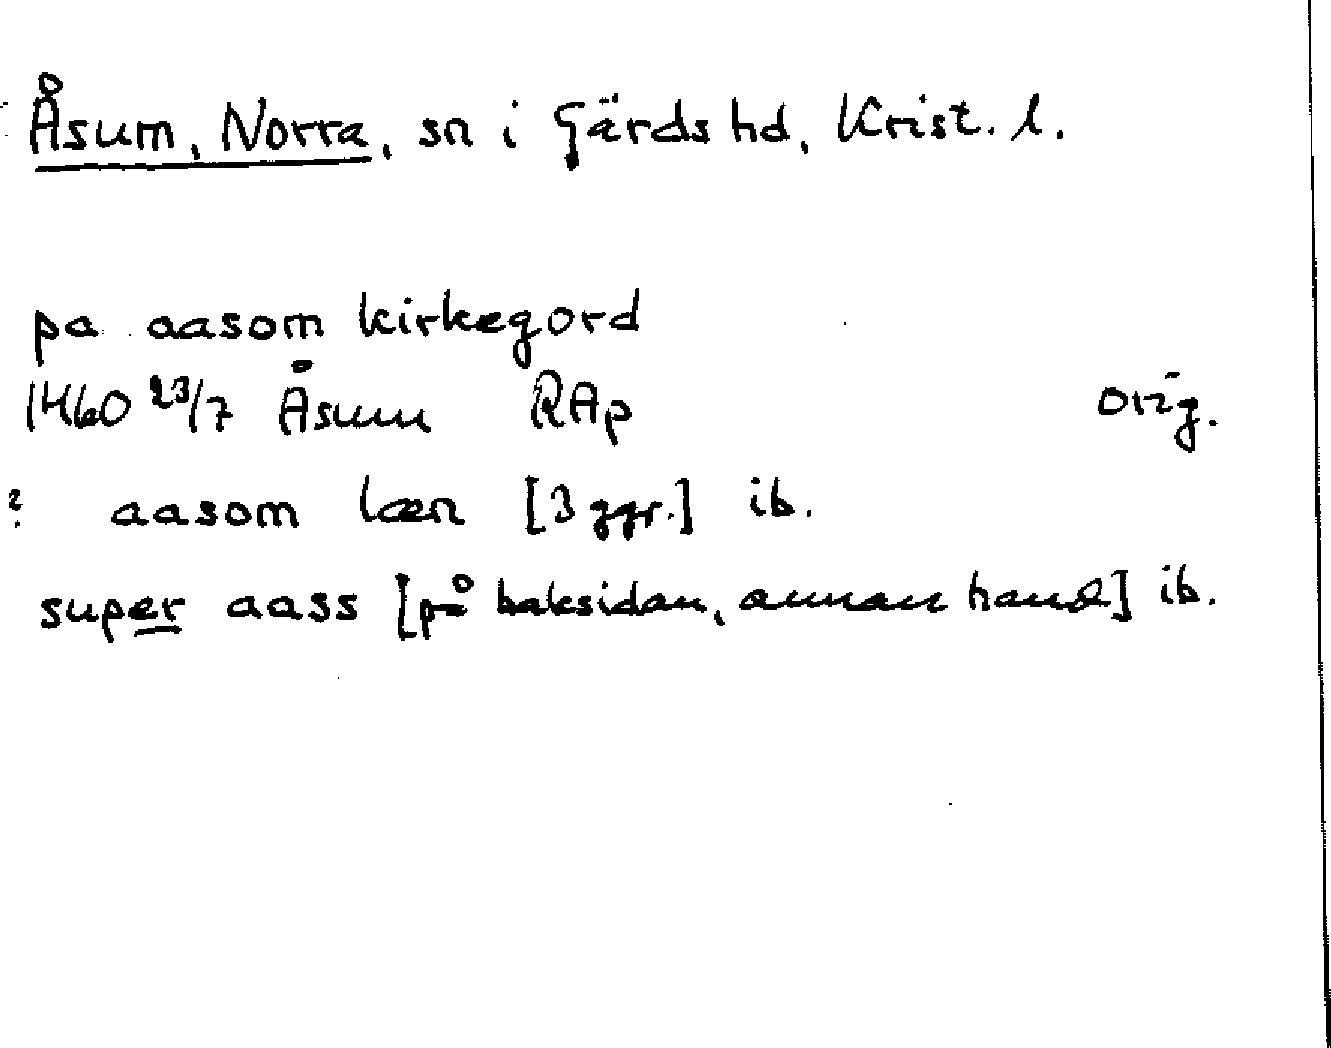 Åsum, Norra, sn i Gärds hd, Krist. l.
pa aasom kirkegord
1460 23/7 Åsum RAp orig.
? aasom læn [3 ggr.] ib.
super aass [på baksidan, annan hand] ib.